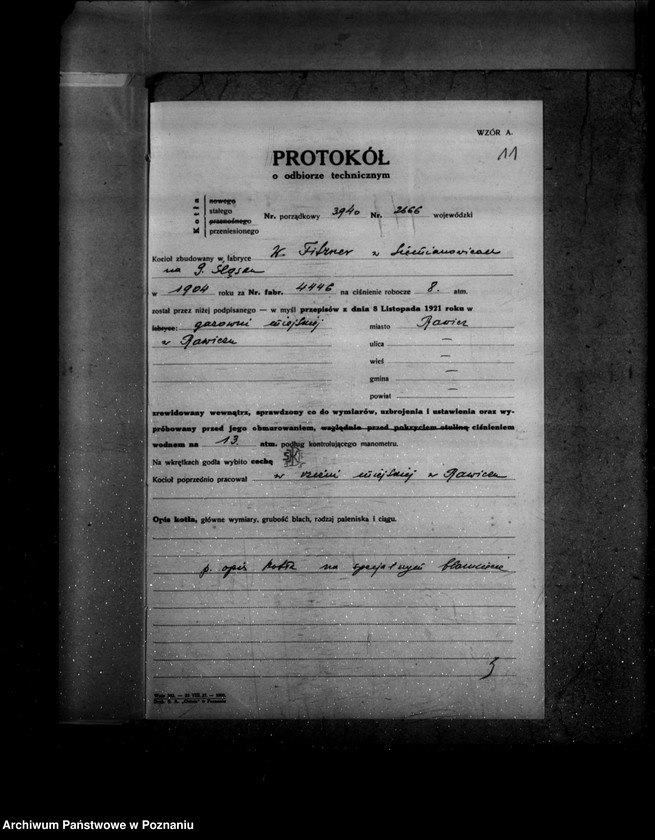 WZÓR A.
11
PROTOKÓŁ
o odbiorze technicznym
Kotła
nowego
stałego
przenośnego
przeniesionego
Nr. porządkowy 3940 Nr. 2666 wojewódzki
Kocioł zbudowany w fabryce W. Fitzner w Siemianowicach
na G. Śląsku
w 1904 roku za Nr. fabr. 4446 na ciśnienie robocze 8. atm.
został przez niżej podpisanego — w myśl przepisów z dnia 8 Listopada 1921 roku w
fabryce: gazowni miejskiej
w Rawiczu
miasto Rawicz
ulica —
wieś —
gmina —
powiat —
zrewidowany wewnątrz, sprawdzony co do wymiarów, uzbrojenia i ustawienia oraz wy-
próbowany przed jego obmurowaniem, względnie przed pokryciem otuliną ciśnieniem
wodnem na 13 atm. podług kontrolującego manometru.
Na wkrętkach godła wybito cechę
Kocioł poprzednio pracował w rzeźni miejskiej w Rawiczu
Opis kotła, główne wymiary, grubość blach, rodzaj paleniska i ciągu.
p. opis kotła na specjalnym blankiecie
Archiwum Państwowe w Poznaniu